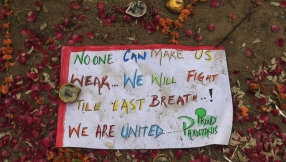 No one can make us
weak... We will fight
till last breath..!
We are united ...... Proud
Pakistanis